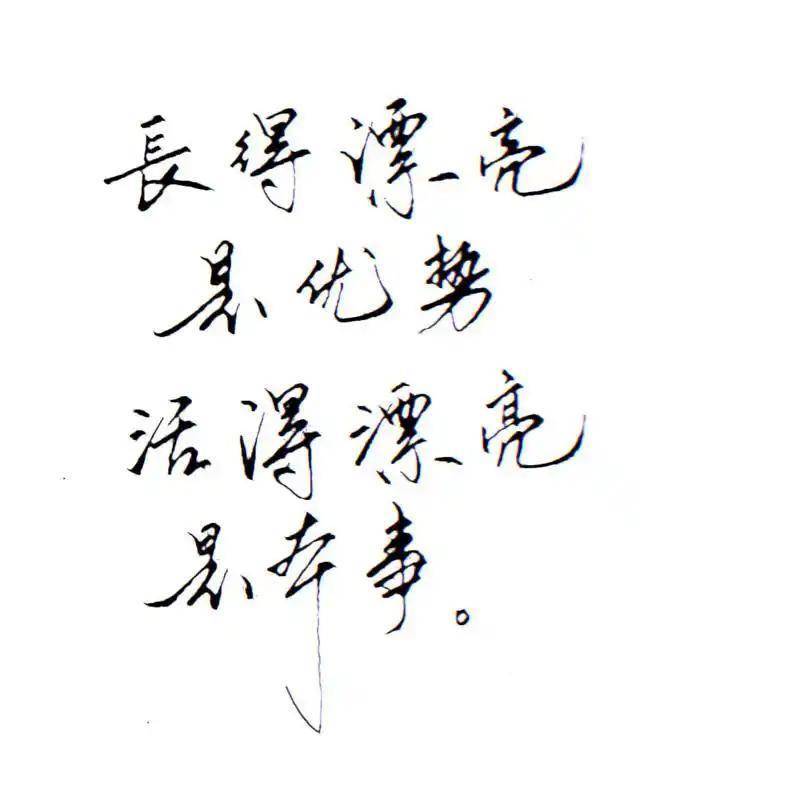 長得漂亮
是优势
活得漂亮
是本事。